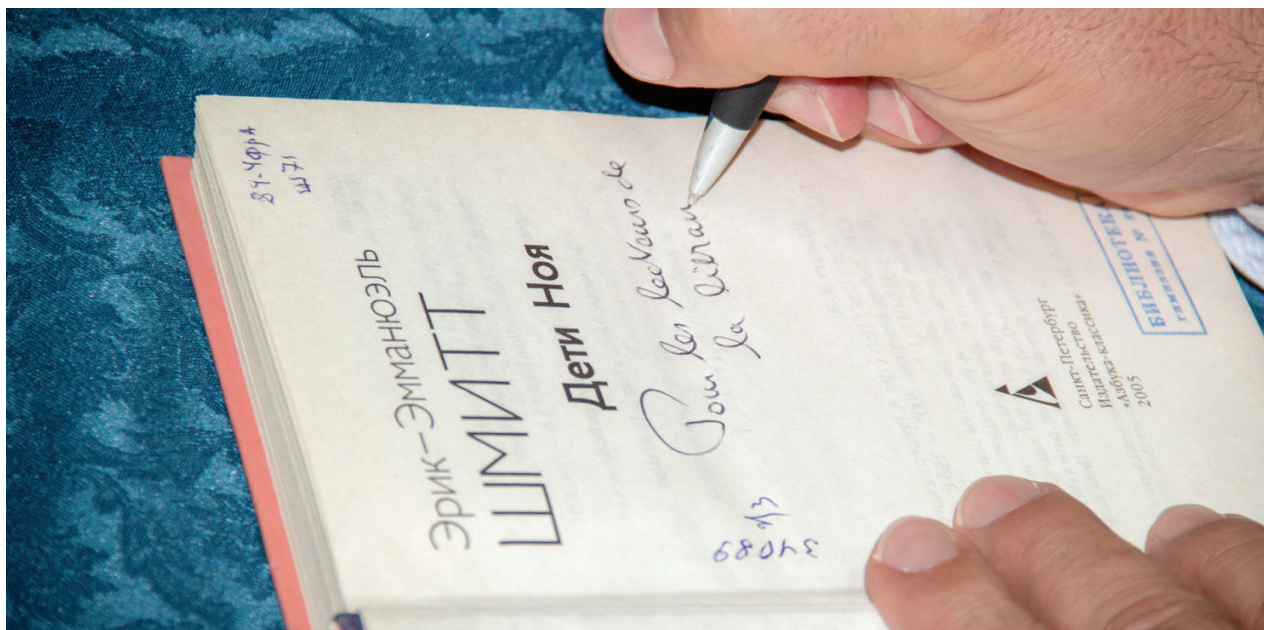 84-4фрА
Ш71
Эрик-Эмманюэль
ШМИТТ
Дети Ноя
Pour les lecteurs de
la librair
34089
Санкт-Петербург
Издательство
«Азбука-классика»
2005
БИБЛИОТЕКА
гимназия №